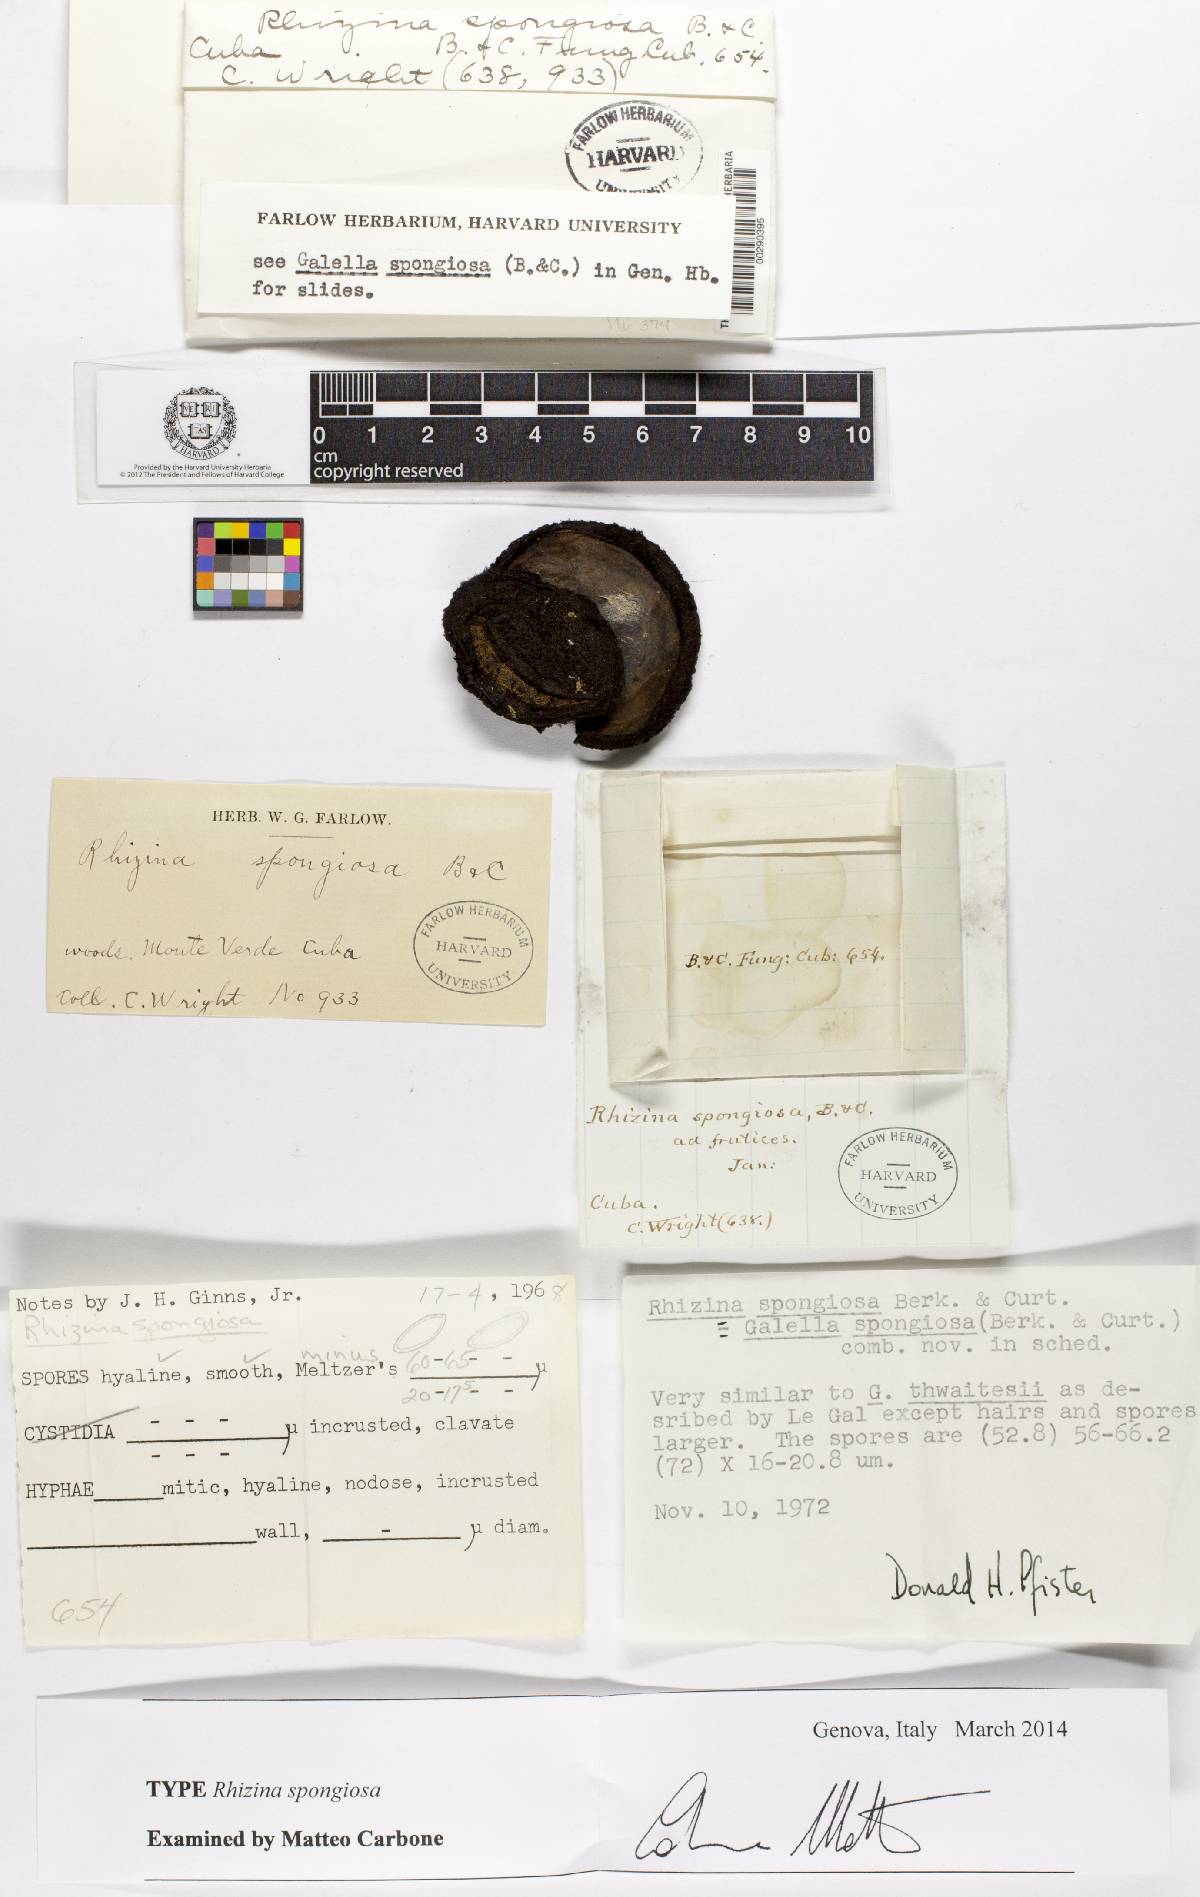 Rhizina spongiosa B. & C.
Cuba B. & C. Fung Cub. 654.
C. Wright (638, 933)
FARLOW HERBARIUM
HARVARD
UNIVERSITY
HERBARIA
00290395
FARLOW HERBARIUM, HARVARD UNIVERSITY
see Galella spongiosa (B.&C.) in Gen. Hb.
for slides.
VE RI
TAS
HARVARD
Provided by the Harvard University Herbaria
© 2012 The President and Fellows of Harvard College
0 1 2 3 4 5 6 7 8 9 10
cm
copyright reserved
HERB. W. G. FARLOW.
Rhizina spongiosa B & C
woods. Monte Verde Cuba
Coll. C. Wright No 933
FARLOW HERBARIUM
HARVARD
UNIVERSITY
B. & C. Fung: Cub: 654.
Rhizina spongiosa, B. & C.
ad frutices.
Jan:
Cuba.
C. Wright (638.)
FARLOW HERBARIUM
HARVARD
UNIVERSITY
Notes by J. H. Ginns, Jr. 17-4, 1968
Rhizina spongiosa
minus
SPORES hyaline, smooth, Meltzer's 60-65- - µ
20-17⁵- -
CYSTIDIA - - - µ incrusted, clavate
- - -
HYPHAE_____mitic, hyaline, nodose, incrusted
_____wall, - µ diam.
654
Rhizina spongiosa Berk. & Curt.
= Galella spongiosa(Berk. & Curt.)
comb. nov. in sched.
Very similar to G. thwaitesii as de-
sribed by Le Gal except hairs and spores
larger. The spores are (52.8) 56-66.2
(72) X 16-20.8 um.
Nov. 10, 1972
Donald H. Pfister
Genova, Italy March 2014
TYPE Rhizina spongiosa
Examined by Matteo Carbone